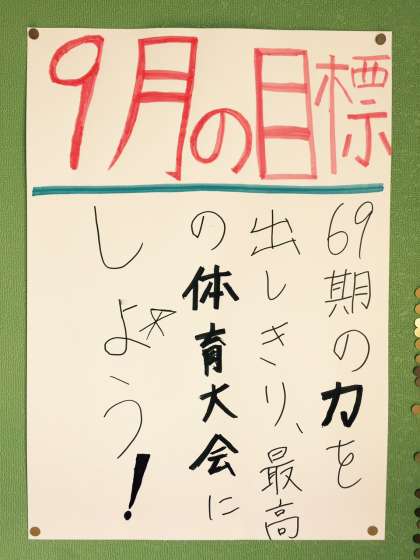 9月の目標
69期の力を
出しきり、最高
の体育大会に
しよう!